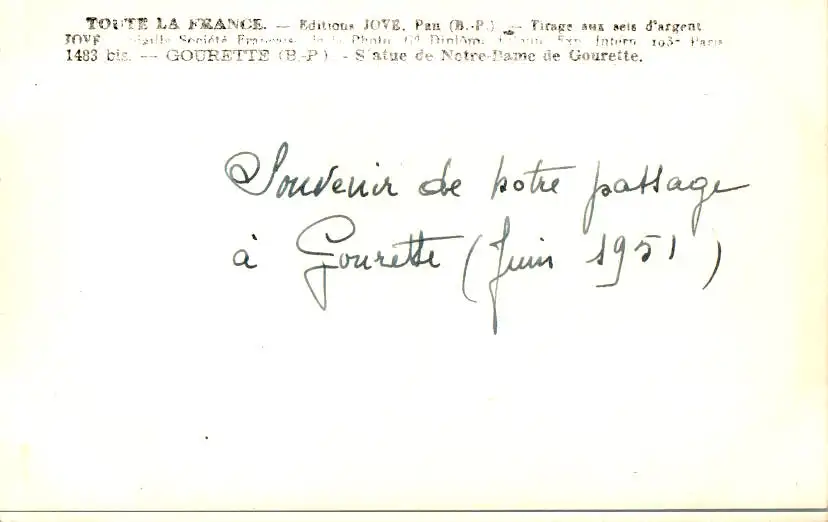 TOUTE LA FRANCE. — Editions JOVE, Pau (B.-P.) — Tirage aux sels d'argent
JOVE Société de la Photo Gd Diplôme Intern Paris
1483 bis. — GOURETTE (B.-P.) - Statue de Notre-Dame de Gourette.
Souvenir de notre passage
à Gourette (Juin 1951)